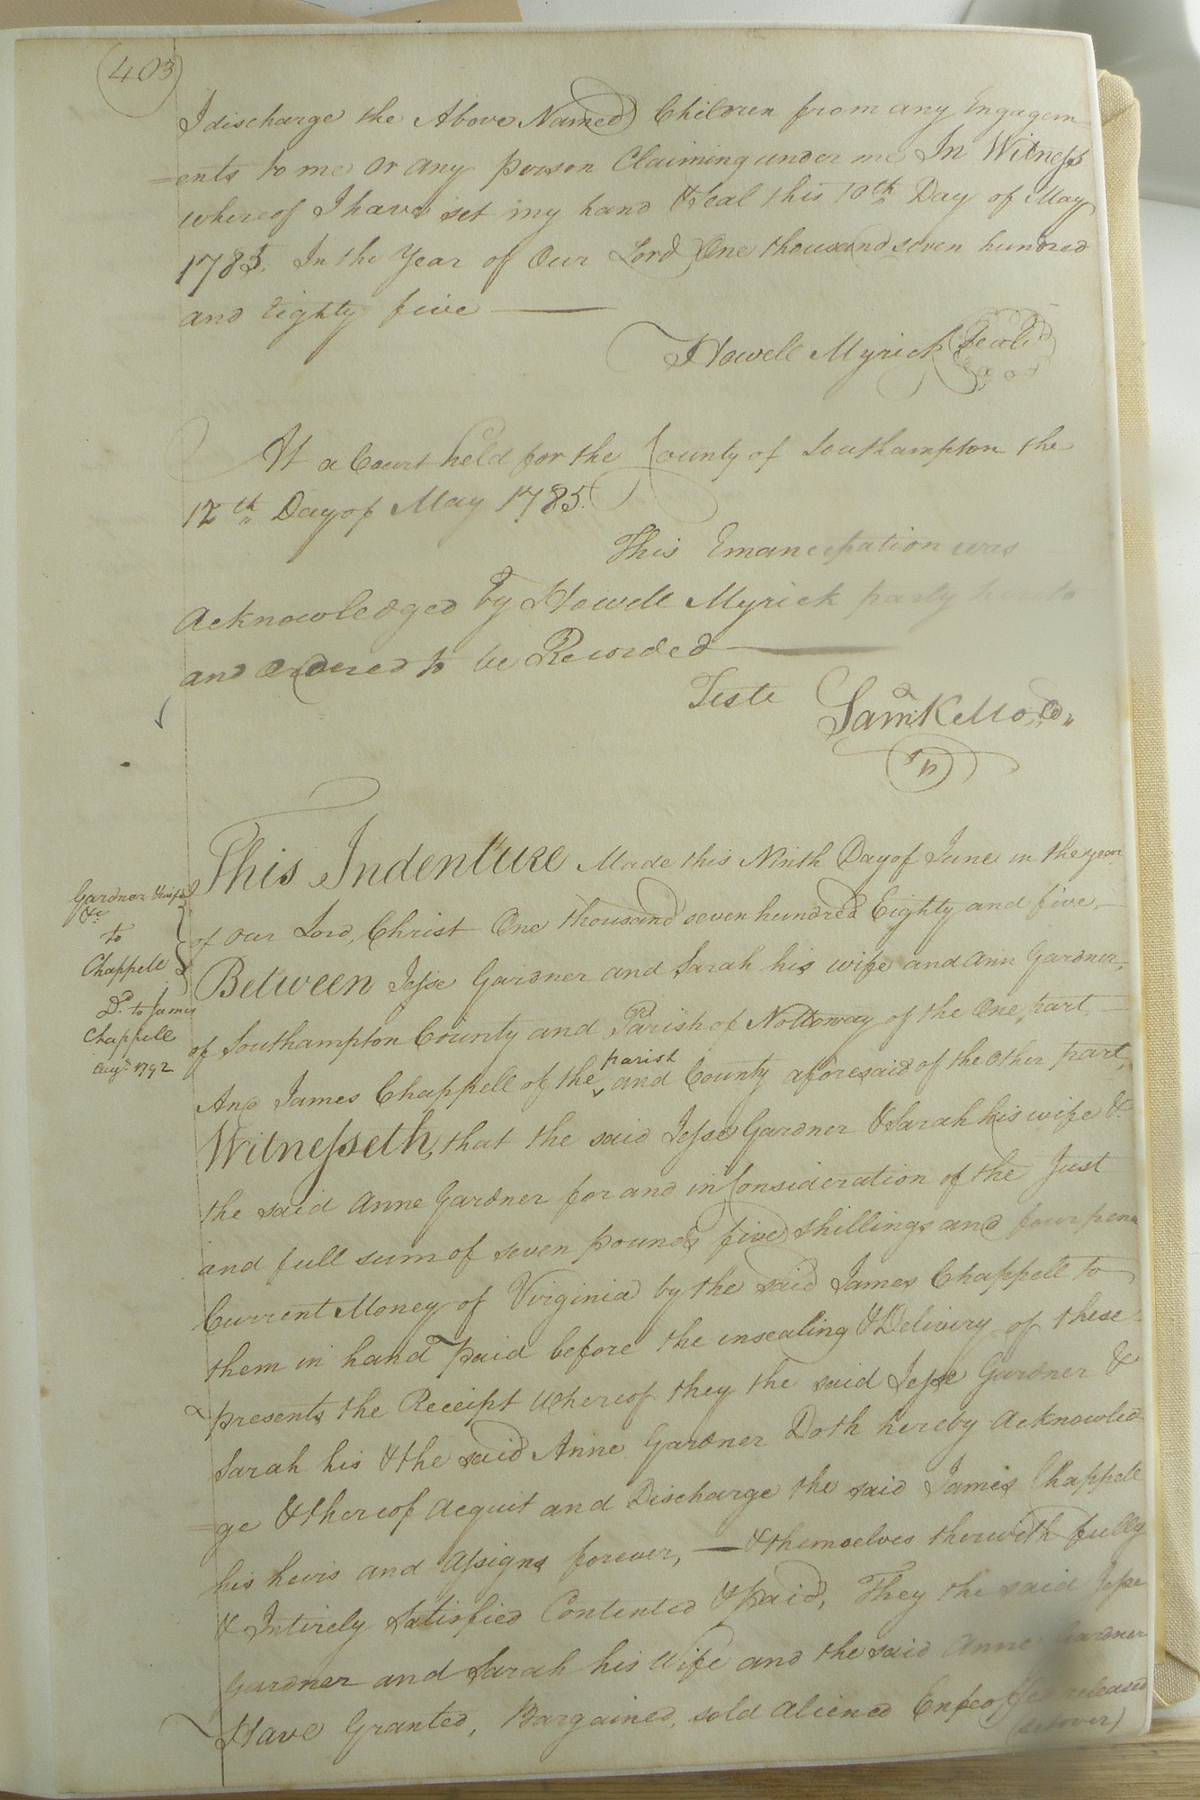 403
I discharge the Above Named Children from any Engagem
=ents to me or any person Claiming under me In Witness
whereof I have set my hand & Seal this 10th Day of May
1785. In the Year of Our Lord One thousand seven hundred
and Eighty five
Howell Myrick Seal
At a Court held for the County of Southampton the
12th Day of May 1785.
This Emancipation was
Acknowledged by Howell Myrick party hereto
and Ordered to be Recorded
Teste Saml Kello, Co,,
This Indenture Made this Ninth Day of June in the year
of our Lord, Christ One thousand seven hundred Eighty and five,
Between Jesse Gardner and Sarah his wife and Ann Gardner,
of Southampton County and Parish of Nottoway of the One part,
And James Chappell of the parish and County aforesaid of the other part,
Witnesseth, that the said Jesse Gardner & Sarah his wife &
the said Anne Gardner for and in Consideration of the Just
and full sum of seven pounds five shillings and four pence
Current Money of Virginia by the said James Chappell to
them in hand paid before the insealing & Delivery of these
presents the Receipt Whereof they the said Jesse Gardner &
Sarah his & the said Anne Gardner Doth hereby Acknowled
=ge & thereof Acquit and Discharge the said James Chappell
his heirs and Assigns forever, — & themselves therewith fully
& Intirely Satisfied Contented & paid, They the said Jesse
Gardner and Sarah his Wife and the said Anne Gardner
Have Granted, Bargained, sold aliened Enfeoffed released
Gardner
&c
to
Chappell
Dd. to James
Chappell
Augt. 1792